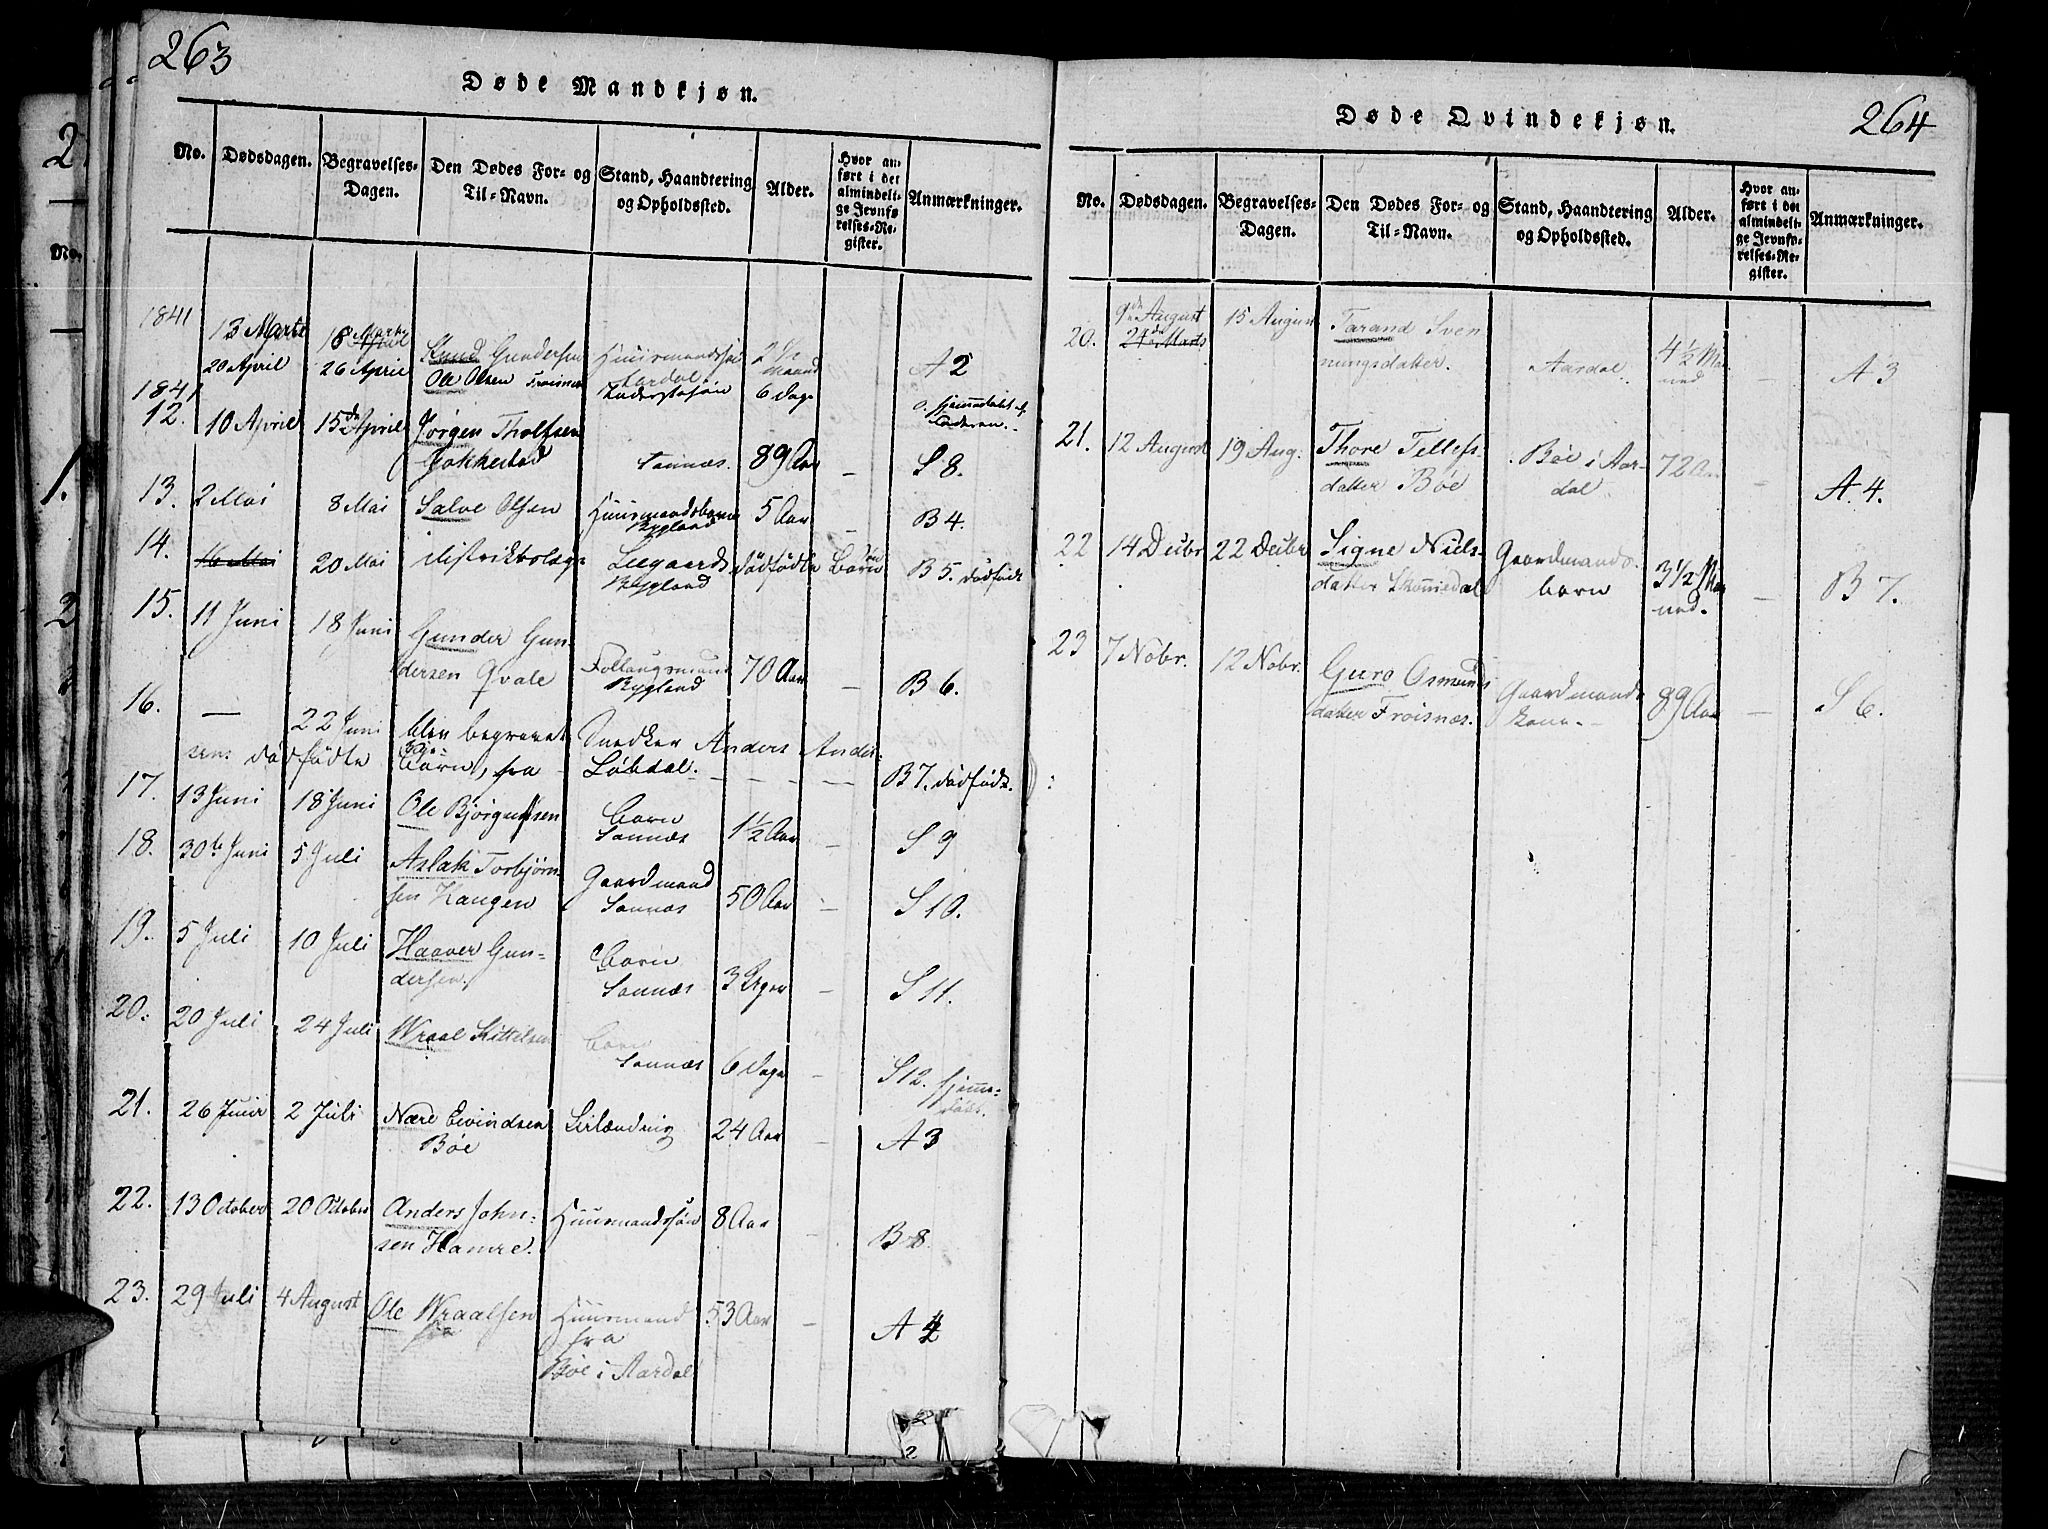 263
Døde Mandkjøn.
No. Dødsdagen. Begravelses-Dagen. Den Dødes For- og Til-Navn. Stand, Haandtering og Opholdssted. Alder. Hvor anført i det almindelige Jevnførelses-Register. Anmærkninger.
1841 13 Marts 18 Marts Knud Gundersen Huusmandssøn Aardal 2 1/2 Maaned A 2
20 April 26 April Ole Olsen Froisnes 6 Dage
1841
12. 10 April 15de April Jørgen Tholfsen Sannæs. 89 Aar – S 8.
13. 2 Mai 8 Mai Salve Olsen Huusmandsbarn Bygland 5 Aar – B 4.
14. 20 Mai Bygland dødfødte Barn B 5. dødfødt
15. 11 Juni 18 Juni Gunder Gun-
dersen Qvale Bygland 70 Aar – B 6.
16. — 22 Juni blev begravet Snedker Anders Ander-
sens dødfødte Barn, fra Løbdal. B 7. dødfødt.
17. 13 Juni 18 Juni Ole Bjørgufsen Barn Sannæs 1 1/2 Aar – S 9
18. 30te Juni 5 Juli Aslak Torbjørn-
sen Haugen Gaardmand Sannæs 50 Aar – S 10.
19. 5 Juli 10 Juli Haaver Gun-
dersen. Barn Sannæs 3 Uger – S 11.
20. 20 Juli 24 Juli Wraal Kittelsen Barn Sannæs 6 Dage – S 12. hjemme-
døbt.
21. 26 Juni 2 Juli Nære Eivindsen
Bøe 24 Aar – A 3
22. 13 October 20 October Anders John-
sen Hamre. Huusmandssøn 8 Aar – B 8.
23. 29 Juli 4 August Ole Wraalsen Huusmand
fra
Bøe i Aardal 53 Aar – A 4
264
Døde Qvindekjøn.
No. Dødsdagen. Begravelses-Dagen. Den Dødes For- og Til-Navn. Stand, Haandtering og Opholdssted. Alder. Hvor anført i det almindelige Jevnførelses-Register. Anmærkninger.
20. 9de August 24de Marts 15 August Tarand Sven-
nungsdatter. Aardal. 4 1/2 Maa-
ned – A 3
21. 12 August 19 Aug. Thore Tellefs-
datter Bøe Bøe i Aar-
dal 72 Aar – A. 4.
22 14 Decbr 22 Decbr Signe Niels-
datter Skomedal Gaardmands-
barn 3 1/2 Maa-
ned. – B 7.
23 7 Nobr. 12 Nobr. Guro Osmunds-
datter Froisnæs. Gaardmands
kone. 89 Aar – S 6.